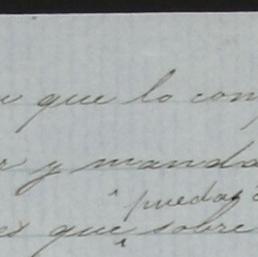 que lo con
y manda
puedas
que sobre